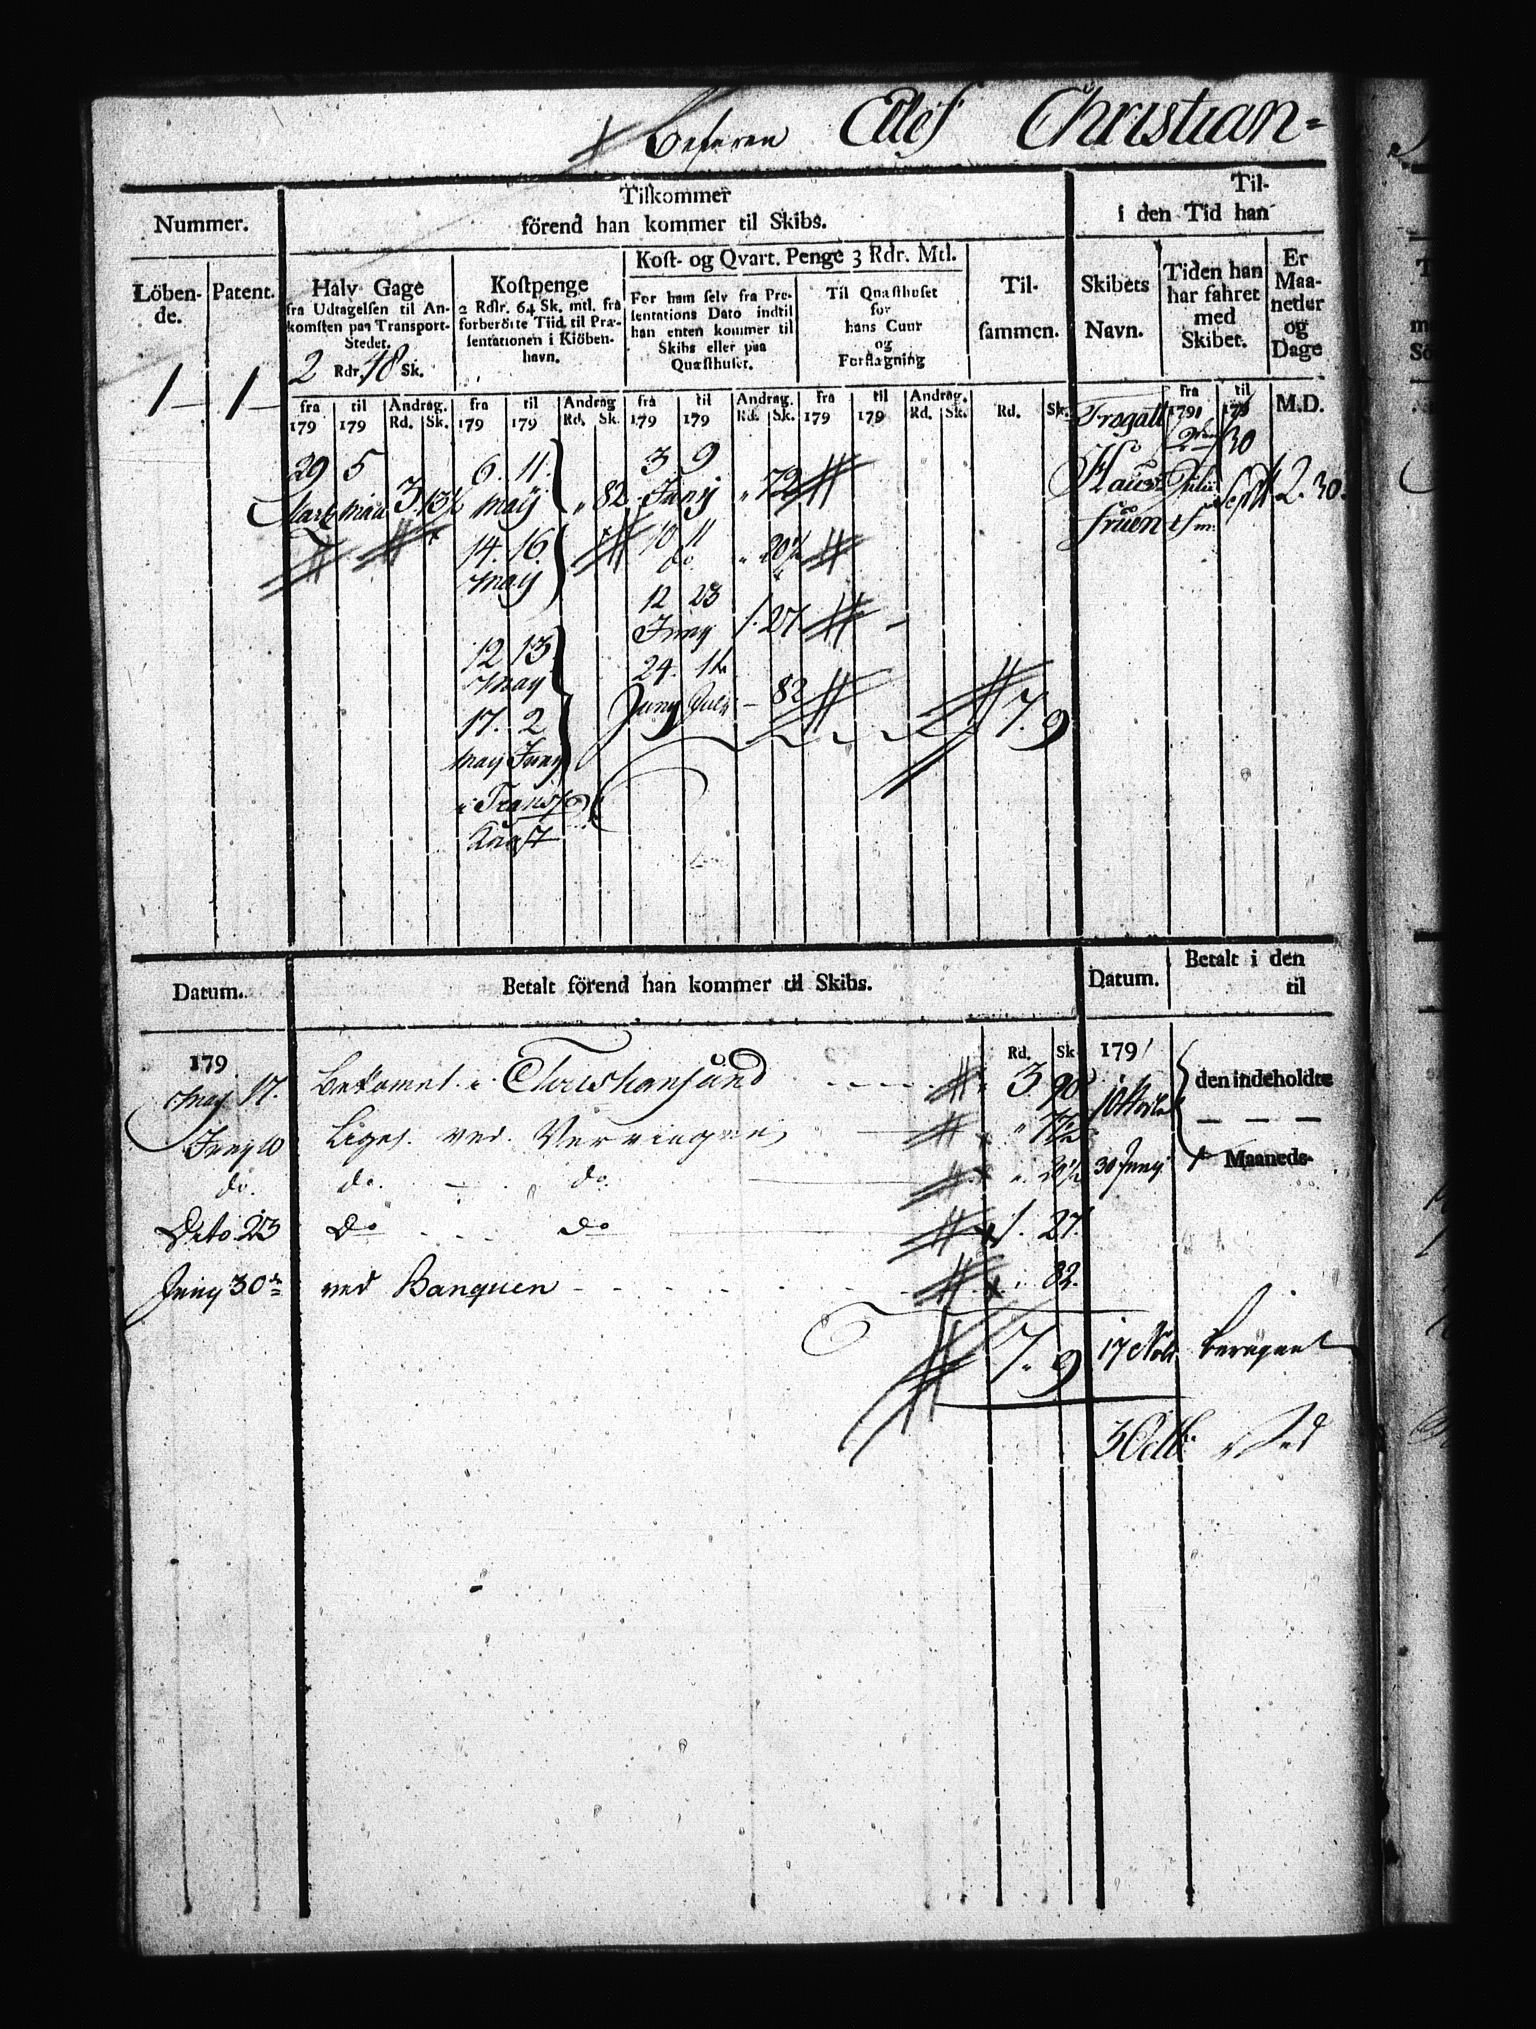 Befaren Ellef Christian=
Tilkommer
förend han kommer til Skibs.
Til-
i den Tid han
Nummer.
Löben-
de.
Patent.
Halv Gage
fra Udtagelsen til An-
komsten paa Transport-
Stedet.
2 Rdr. 48 Sk.
Kostpenge
2 Rdlr. 64 Sk. mtl. fra
forberörte Tiid til Præ-
sentationen i Kiöben-
havn.
Kost- og Qvart. Penge 3 Rdr. Mtl.
For ham selv fra Præ-
sentations Dato indtil
han enten kommer til
Skibs eller paa
Quæsthuset.
Til Quæsthuset
for
hans Cuur
og
Forflagning
Til-
sammen.
Skibets
Navn.
Tiden han
har fahret
med
Skibet.
Er
Maa-
neder
og
Dage
1 1
fra
179
til
179
Andrag.
Rd. Sk.
fra
179
til
179
Andrag
Rd. Sk.
fra
179
til
179
Andrag.
Rd. Sk.
fra
179
til
179
Andrag.
Rd. Sk.
Rd. Sk.
fra
1791
til
1791
M.D.
29 5
Marti Maii 3. 13½
6. 11.
May
14. 16
May
" 82.
12 13
May
17. 2
May Juny
Transp
Kost
3 9
Junij " 72
10 11
do " 20½
12 23
Juny 1. 27.
24. 11
Juny Julii – 82
7. 9
Fregatt
Hau
fruen
2den
Julii
30
Sept
2. 30.
Datum.
Betalt förend han kommer til Skibs.
Datum.
Betalt i den
til
179
Rd. Sk.
1791
den indeholdte
Maaneds-
May 17. Bekomet i Christiansund 3. 90
Juny 10 Liges. ved. " 72
do. do. do. " 20½
Dito 23 do do 1. 27.
Juny 30te ved Banquen " 82.
30 Juny
7. 9
17 Nov.
3 Octb: